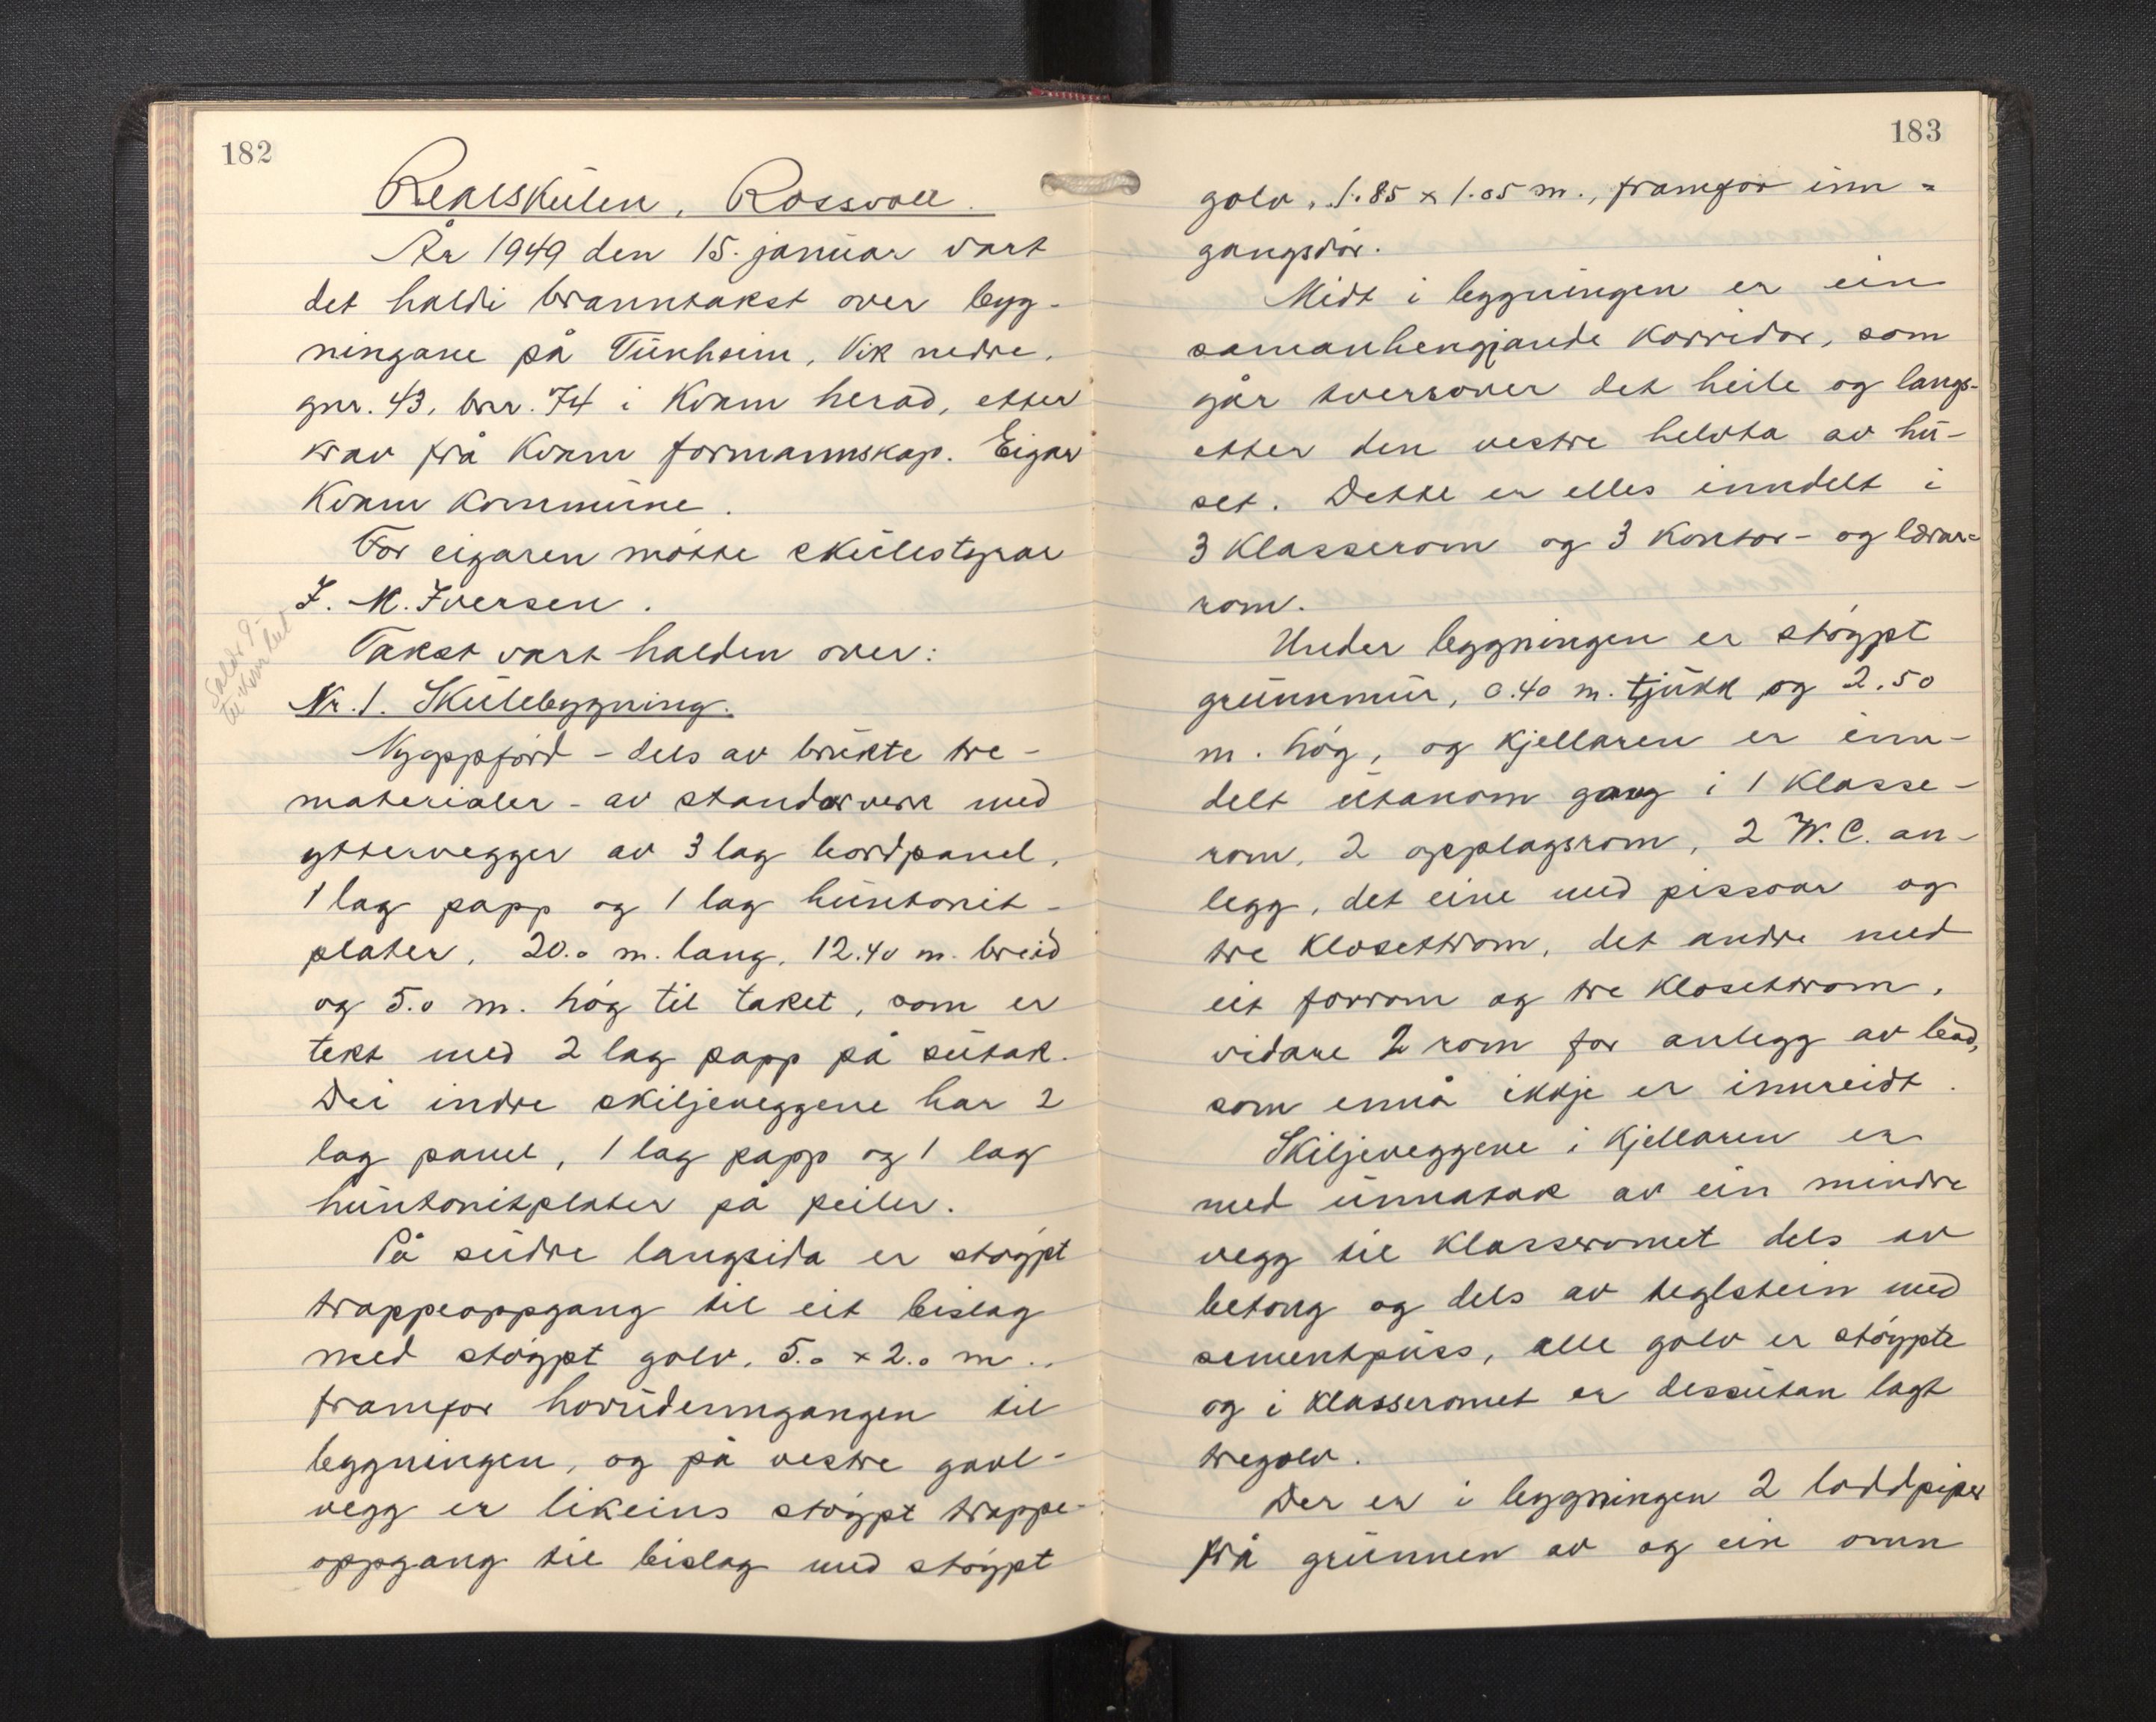 182
Realskulen, Rossvoll.
År 1949 den 15. januar vart
det haldi branntakst over byg-
ningane på Tunheim, Vik nedre,
gnr. 43, bnr. 74 i Kvam herad, etter
krav frå Kvam formannskap. Eigar
Kvam kommune.
For eigaren møtte skulestyrar
J. M. Iversen.
Takst vart halden over:
Nr. 1. Skulebygning.
Nyoppførd - dels av brukte tre-
materialer - av standarverk med
yttervegger av 3 lag bordpanel,
1 lag papp og 1 lag huntonit-
plater, 20.0 m. lang, 12.40 m. breid
og 5.0 m. høg til taket, som er
tekt med 2 lag papp på sutak.
Dei indre skiljeveggene har 2
lag panel, 1 lag papp og 1 lag
huntonitplater på peiler.
På sudre langsida er støypt
trappeoppgang til eit bislag
med støypt golv, 5.0 x 2.0 m..
framfor hovudinngangen til
bygningen, og på vestre gavl-
vegg er likeins støypt trappe-
oppgang til bislag med støypt
183
golv, 1.85 x 1.05 m., framfor inn-
gangsdør.
Midt i bygningen er ein
samanhengjande korridor, som
går tversover det heile og langs-
etter den vestre helvta av hu-
set. Dette er elles inndelt i
3 klasserom og 3 kontor- og lærar-
rom.
Under bygningen er støypt
grunnmur, 0.40 m. tjukk og 2.50
m. høg, og kjellaren er inn-
delt utanom gang i 1 klasse-
rom, 2 opplagsrom, 2 W.C. an-
legg, det eine med pissoar og
tre klosettrom, det andre med
eit forrom og tre klosettrom,
vidare 2 rom for anlegg av bad,
som ennå ikkje er innreidt.
Skiljeveggene i kjellaren er
med unnatak av ein mindre
vegg til klasseromet dels av
betong og dels av teglstein med
sementpuss, alle golv er støypte
og i klasseromet er dessutan lagt
tregolv.
Der er i bygningen 2 loddpiper
frå grunnen av og ein omn